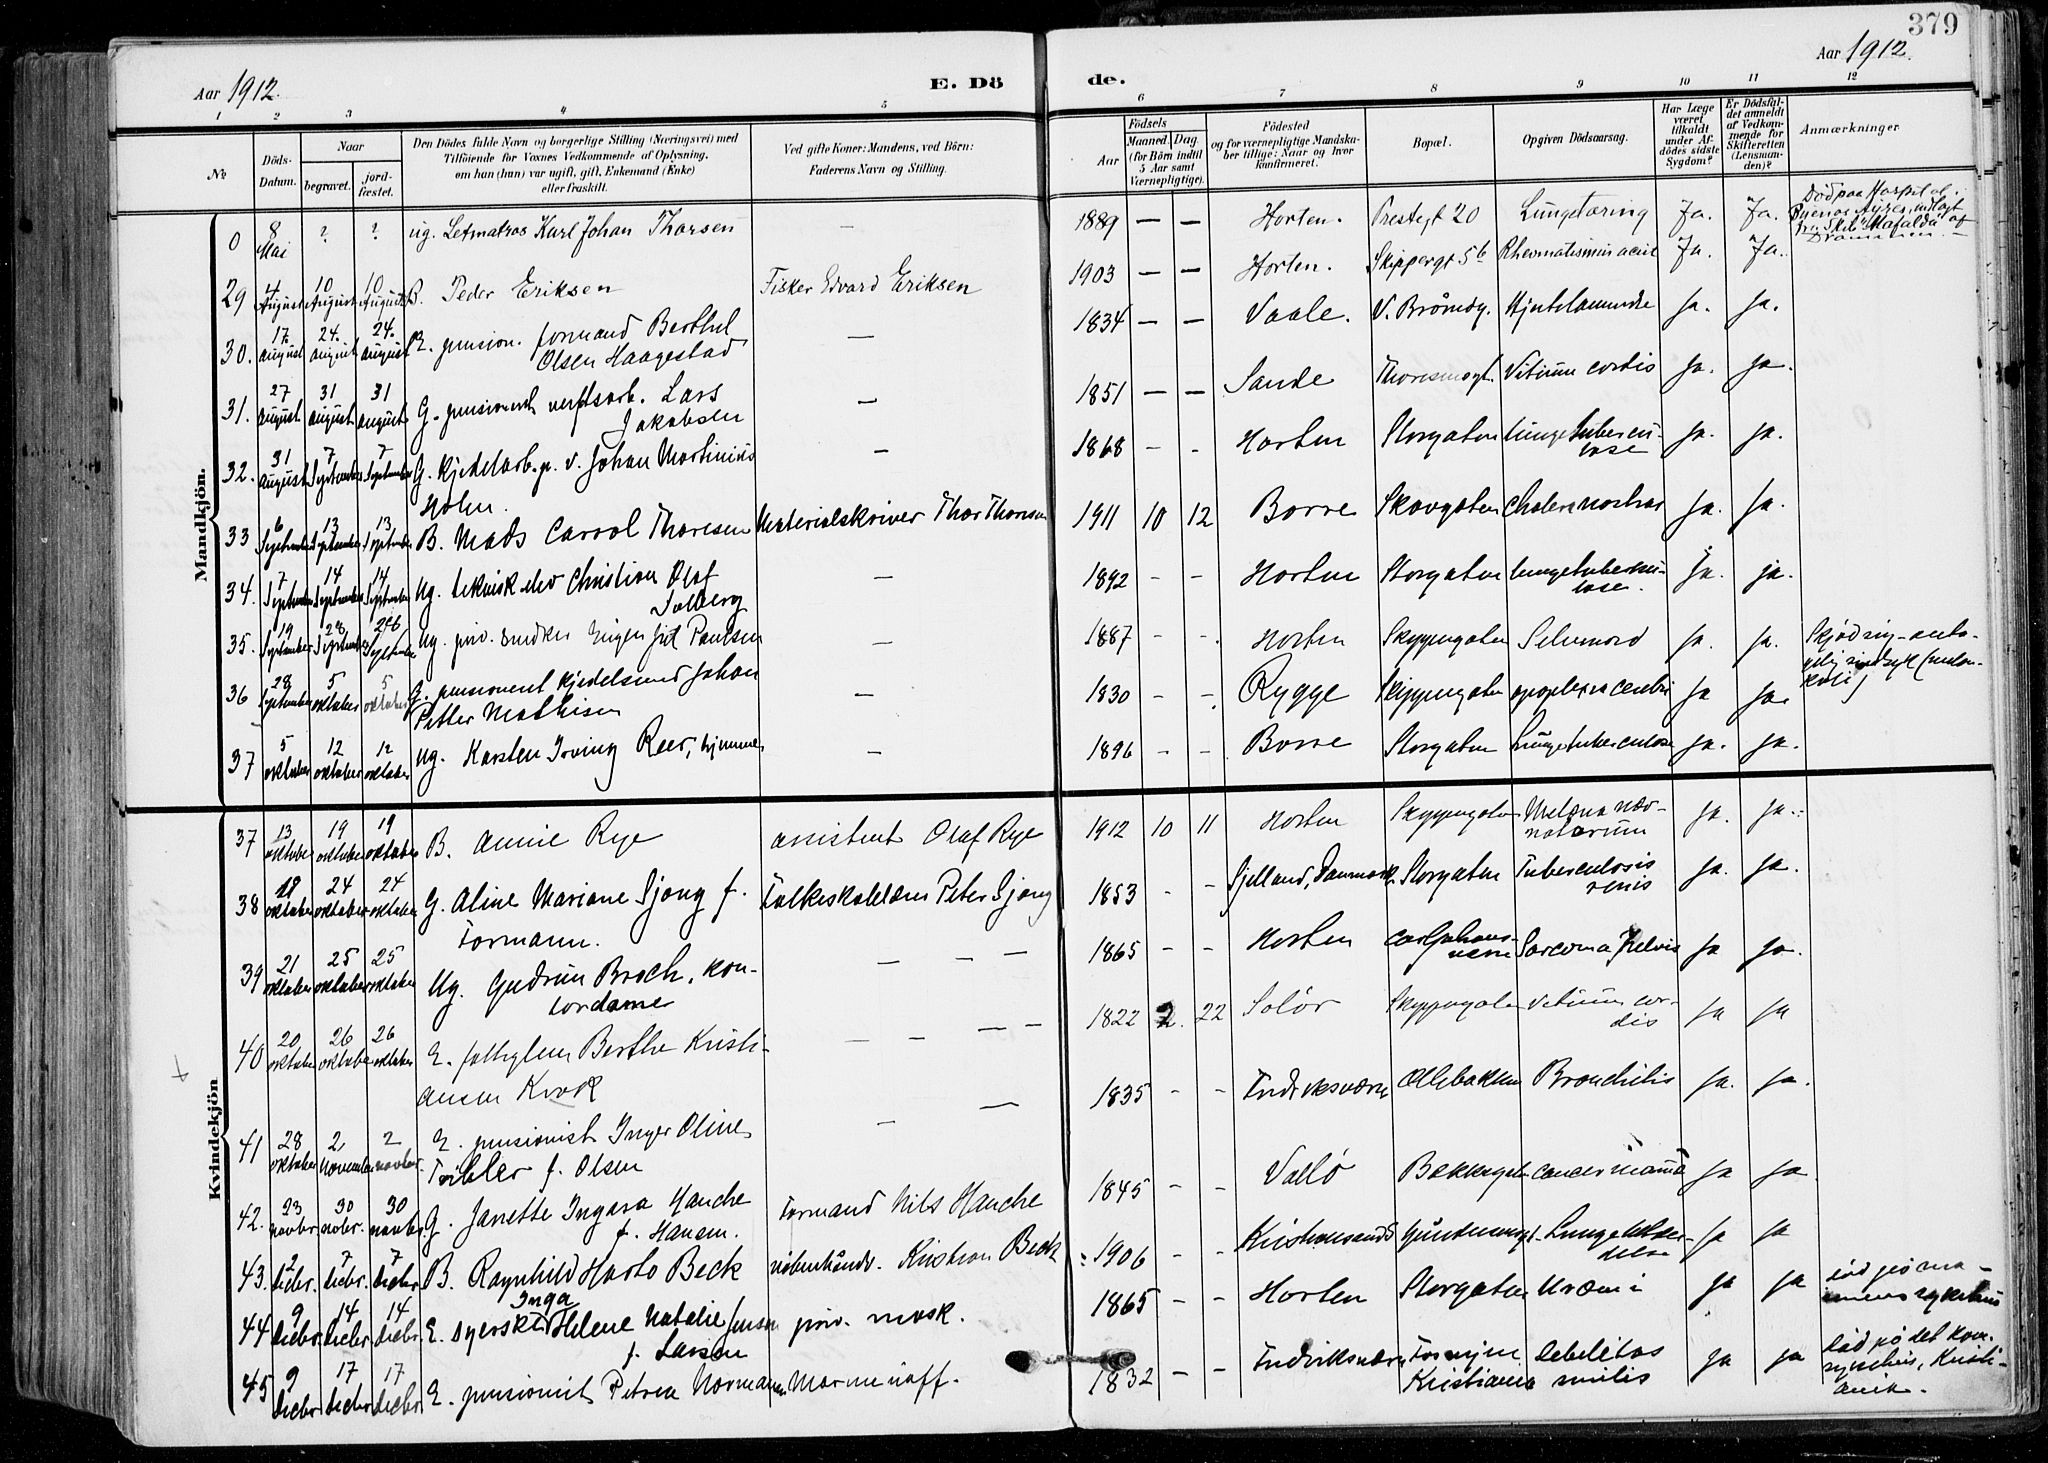 379
Aar 1912.
E. Dö
de.
Aar 1912.
1 2 3 4 5 6 7 8 9 10 11 12
№
Döds-
Datum.
Naar
begravet.
jord-
fæstet.
Den Dödes fulde Navn og borgerlige Stilling (Næringsvei) med
Tilföiende for Voxnes Vedkommende af Oplysning,
om han (hun) var ugift, gift, Enkemand (Enke)
eller fraskilt.
Ved gifte Koner: Mandens, ved Börn:
Faderens Navn og Stilling.
Födsels
Aar
Maaned. Dag.
(for Börn indtil
5 Aar samt
Værnepligtige).
Födested
og for værnepligtige Mandska-
ber tillige: Naar og hvor
konfirmeret.
Bopæl.
Opgiven Dödsaarsag.
Har Læge
været
tilkaldt
under Af-
dödes sidste
Sygdom?
Er Dödsfal-
det anmeldt
af Vedkom-
mende for
Skifteretten
(Lensman-
den)?
Anmærkninger
Mandkjön.
0 8 Mai ? ? ug. Letmatros Karl Johan Thorsen — 1889 — — Horten. Prestegt 20 Lungetæring Ja. Ja. Död paa Hospital i
Buenos Ayres, indlagt
fra Skib "Mafalda" af
Drammen. —
29 4 August 10 August 10 August B. Peder Eriksen Fisker Edvard Eriksen 1903 — — Horten. Skippergt 56 Rheumatismus acut Ja. Ja.
30. 17. august 24. august 24. august E. pension. formand Berthel
Olsen Haagestad — 1834 — — Vaale. V. Hjertelammelse Ja. Ja.
31. 27 august 31 august 31 august G. pensioneret verftsarb. Lars
Jakobsen — 1851 — — Sande Thoresensgt. Vitium cordis Ja. Ja.
32. 31 august 7 September 7 September G. kjedelarb. p. v. Johan Martinius
Holm. — 1868 - - Horten Storgaten Lungetubercu-
lose Ja. Ja.
33 6 September 13 September 13 September B. Mads Carrol Thoresen Materialskriver Thor Thoresen 1911 10 12 Borre Skovgaten Cholera nostras Ja. Ja.
34. 7 September 14 September 14 September Ug. teknisk elev Christian Olaf
Solberg — 1892 - - Horten Storgaten Lungetubercu-
lose. Ja. Ja.
35. 19 September 28 September September Ug. priv. snedker Paulsen — 1887 - - Horten Skippergaten Selvmord Ja. Ja. Skjød sig - anta-
gelig sindsyk (melan-
koli)
36 28 September 5 oktober 5 oktober G. pensioneret kjedelsmed Johan
Petter Mathisen — 1830 - - Rygge Skippergaten apoplexia cerebri Ja Ja.
37 5 oktober 12 oktober 12 oktober Ug. Karsten Irving Reer, hjemme — 1896 - - Borre Storgaten Lungetuberculose Ja. Ja.
Kvindekjön
37 13 oktober 19 oktober 19 oktober B. Annie Rye assistent Olaf Rye 1912 10 11 Horten Skippergaten Melæna
natorum Ja. Ja.
38 18 oktober 24 oktober 24 oktober G. Aline Mariane Sjong f.
Formann. Folkeskolelærer Peter Sjong 1853 - - Sjelland, Danmark Storgaten Tuberculosis
renis Ja. Ja.
39 21 oktober 25 oktober 25 oktober Ug. Gudrun Broch, kon-
tordame — — — 1865 - - Horten Carljohans-
værn Sarcoma pelvis Ja Ja.
40 20. oktober 26 oktober 26 oktober E. fattiglem Berthe Kristi-
ansen Krok — — — — 1822 2. 22 Solör Skippergaten Vitium cor-
dis Ja Ja
41 28 oktober 2 November 2 novbr. E. pensionist Inger Oline
f. Olsen — — 1835 - - Fredriksværn Ollebakken Bronchitis Ja. Ja.
42. 23 novbr. 30 novbr. 30 novbr. G. Janette Ingara Hanche
f. Hansen. Formand Nils Hanche 1845 - - Vallö Bakkegaten cancer mamma Ja Ja
43. 2 decbr. 7 decbr. 7 decbr. B. Ragnhild Marto Beck Kristian Beck 1906 - - Kristiansand Ja Ja
44 9 decbr. 14 decbr. 14 decbr. E. syerske Inga Helene Natalie Jensen
f. Larsen priv. mask. 1865 - - Horten Storgaten Uræmi Ja Ja död på
sykehus
45 9 decbr 17 decbr 17 decbr. E. pensionist Petrea Normann Marineuoff. 1832 - - Fredriksværn
Kristiania Debilitas
senilis Ja Ja död på det kom.
sykehus, Kristi-
ania.